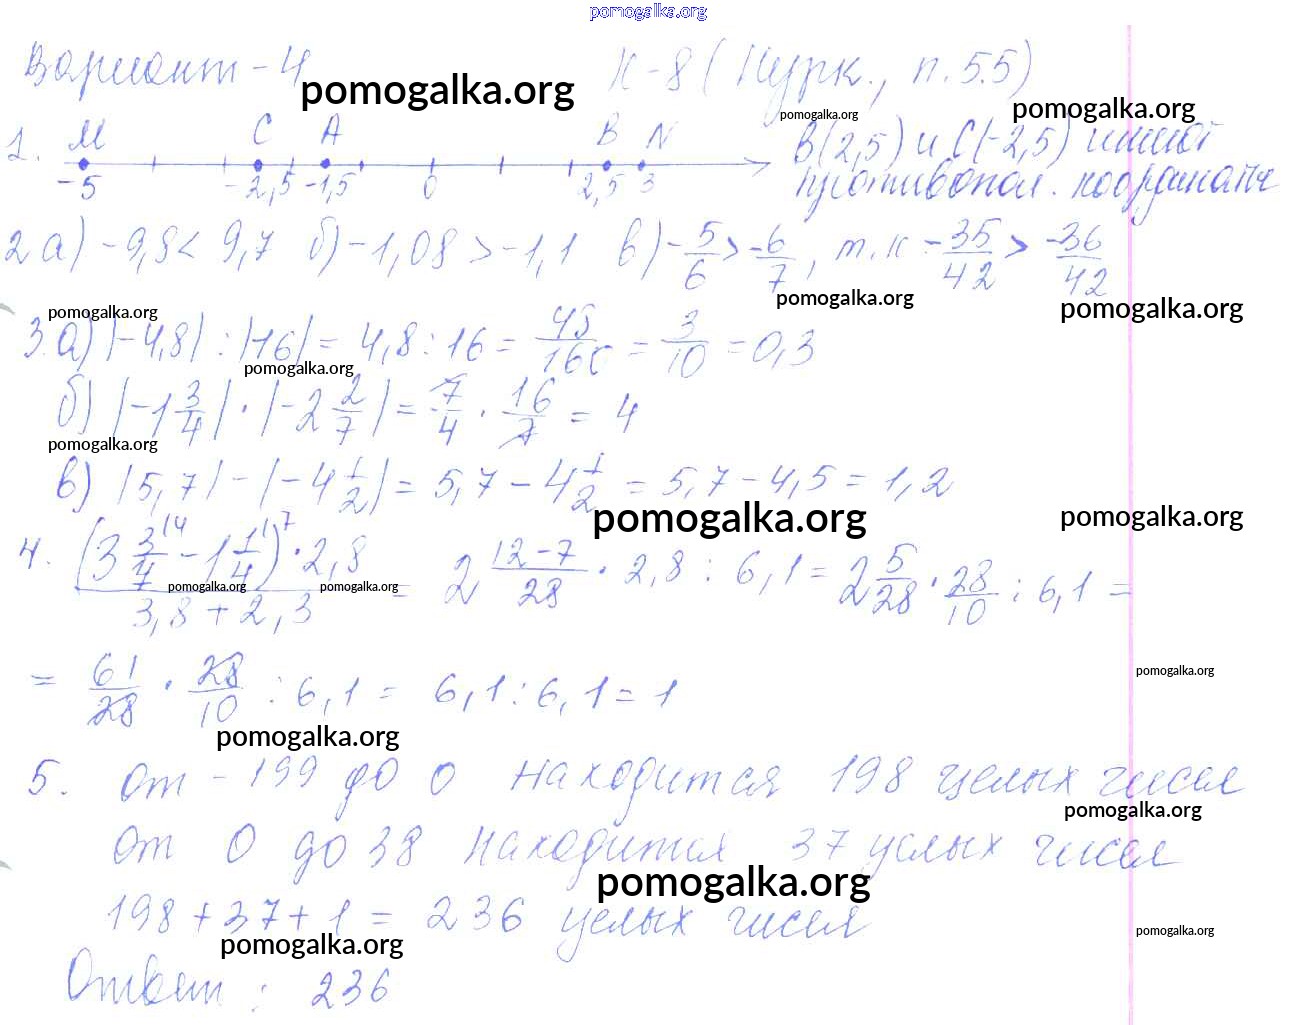 pomogalka.org
Вариант - 4 К-8 (Нурк., п.5.5)
pomogalka.org
pomogalka.org
pomogalka.org
1. M C A B N B(2,5) и C(-2,5) имеют
-5 -2,5 -1,5 0 2,5 3 противопол. координаты
2 а) -9,8 < 9,7 б) -1,08 > -1,1 в) -5/6 > -6/7, т.к -35/42 > -36/42
pomogalka.org pomogalka.org pomogalka.org
3. а) |-4,8| : |16| = 4,8 : 16 = 48/160 = 3/10 = 0,3
pomogalka.org
б) |-1 3/4| · |-2 2/7| = 7/4 · 16/7 = 4
pomogalka.org
в) |5,7| - |-4 1/2| = 5,7 - 4 1/2 = 5,7 - 4,5 = 1,2
pomogalka.org pomogalka.org
4. (3 3/7 - 1 1/4) · 2,8 / 3,8 + 2,3 = 2 12-7/28 · 2,8 : 6,1 = 2 5/28 · 28/10 : 6,1 =
pomogalka.org pomogalka.org
= 61/28 · 28/10 : 6,1 = 6,1 : 6,1 = 1
pomogalka.org
pomogalka.org
5. От -199 до 0 находится 198 целых чисел
pomogalka.org
От 0 до 38 находится 37 целых чисел
pomogalka.org
198 + 37 + 1 = 236 целых чисел
pomogalka.org pomogalka.org
Ответ : 236